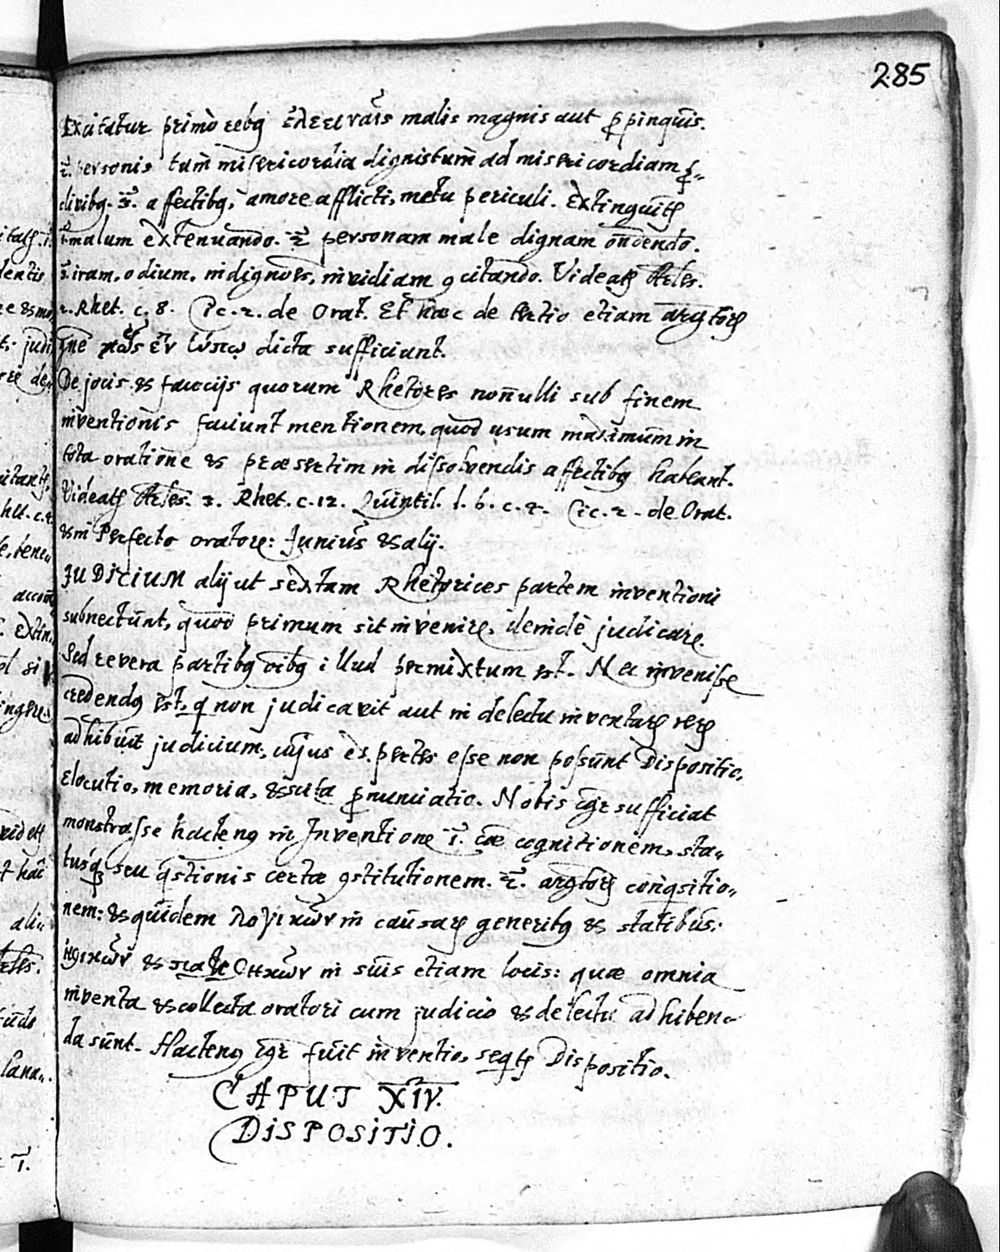 285
Excitatur primò rebq ἐλεειναῖς malis magnis aut ꝓpinquis.
2. personis tum misericordia dignis tum ad misericordiam ꝓ-
clivibq. 3. affectibq, amore afflicti, metu periculi. Extinguitr
1. malum extenuando. 2. personam male dignam on̄dendo.
3. iram, odium, indignōes, invidiam 9citando. Videatr Arles.
2. Rhet. c. 8. Cic. 2. de Orat. Et hæc de tertio etiam argtorꝝ
gn̄e πῶς ἐν dicta sufficiunt.
De jocis & facetijs quorum Rhetores non̄ulli sub finem
inventionis faciunt mentionem, quod usum maximum in
tota oratione & præsertim in dissolvendis affectibq habeant.
Videatr Arles. 3. Rhet. c. 12. Quintil. l. 6. c. 2. Cic. 2. de Orat.
& in Perfecto oratore: Junius & alij.
JUDICIUM alij ut sextam Rhetorices partem inventioni
subnectunt, quod primum sit invenire, deinde judicare.
Sed revera partibq oībq illud permixtum est. Nec invenisse
credendq est, q non judicavit aut in delectu inventarꝝ rerꝝ
adhibuit judicium, cujus ēs. pertes esse non possunt Dispositio,
Elocutio, memoria, & ꝓnunciatio. Nobis igr sufficiat
monstrasse hactenq in Inventione 1. cōe cognitionem, sta-
tusq seu qstionis certæ 9stitutionem. 2. argtorꝝ conqsitio-
nem: & quidem λογικῶν in causarꝝ generibq & statibus.
ἠθικῶν & παθητικῶν in suis etiam locis: quæ omnia
inventa & collecta oratori cum judicio & delectu adhiben-
da sunt. Hactenq igr fuit inventio, seqtr Dispositio.
CAPUT XIV.
DISPOSITIO.